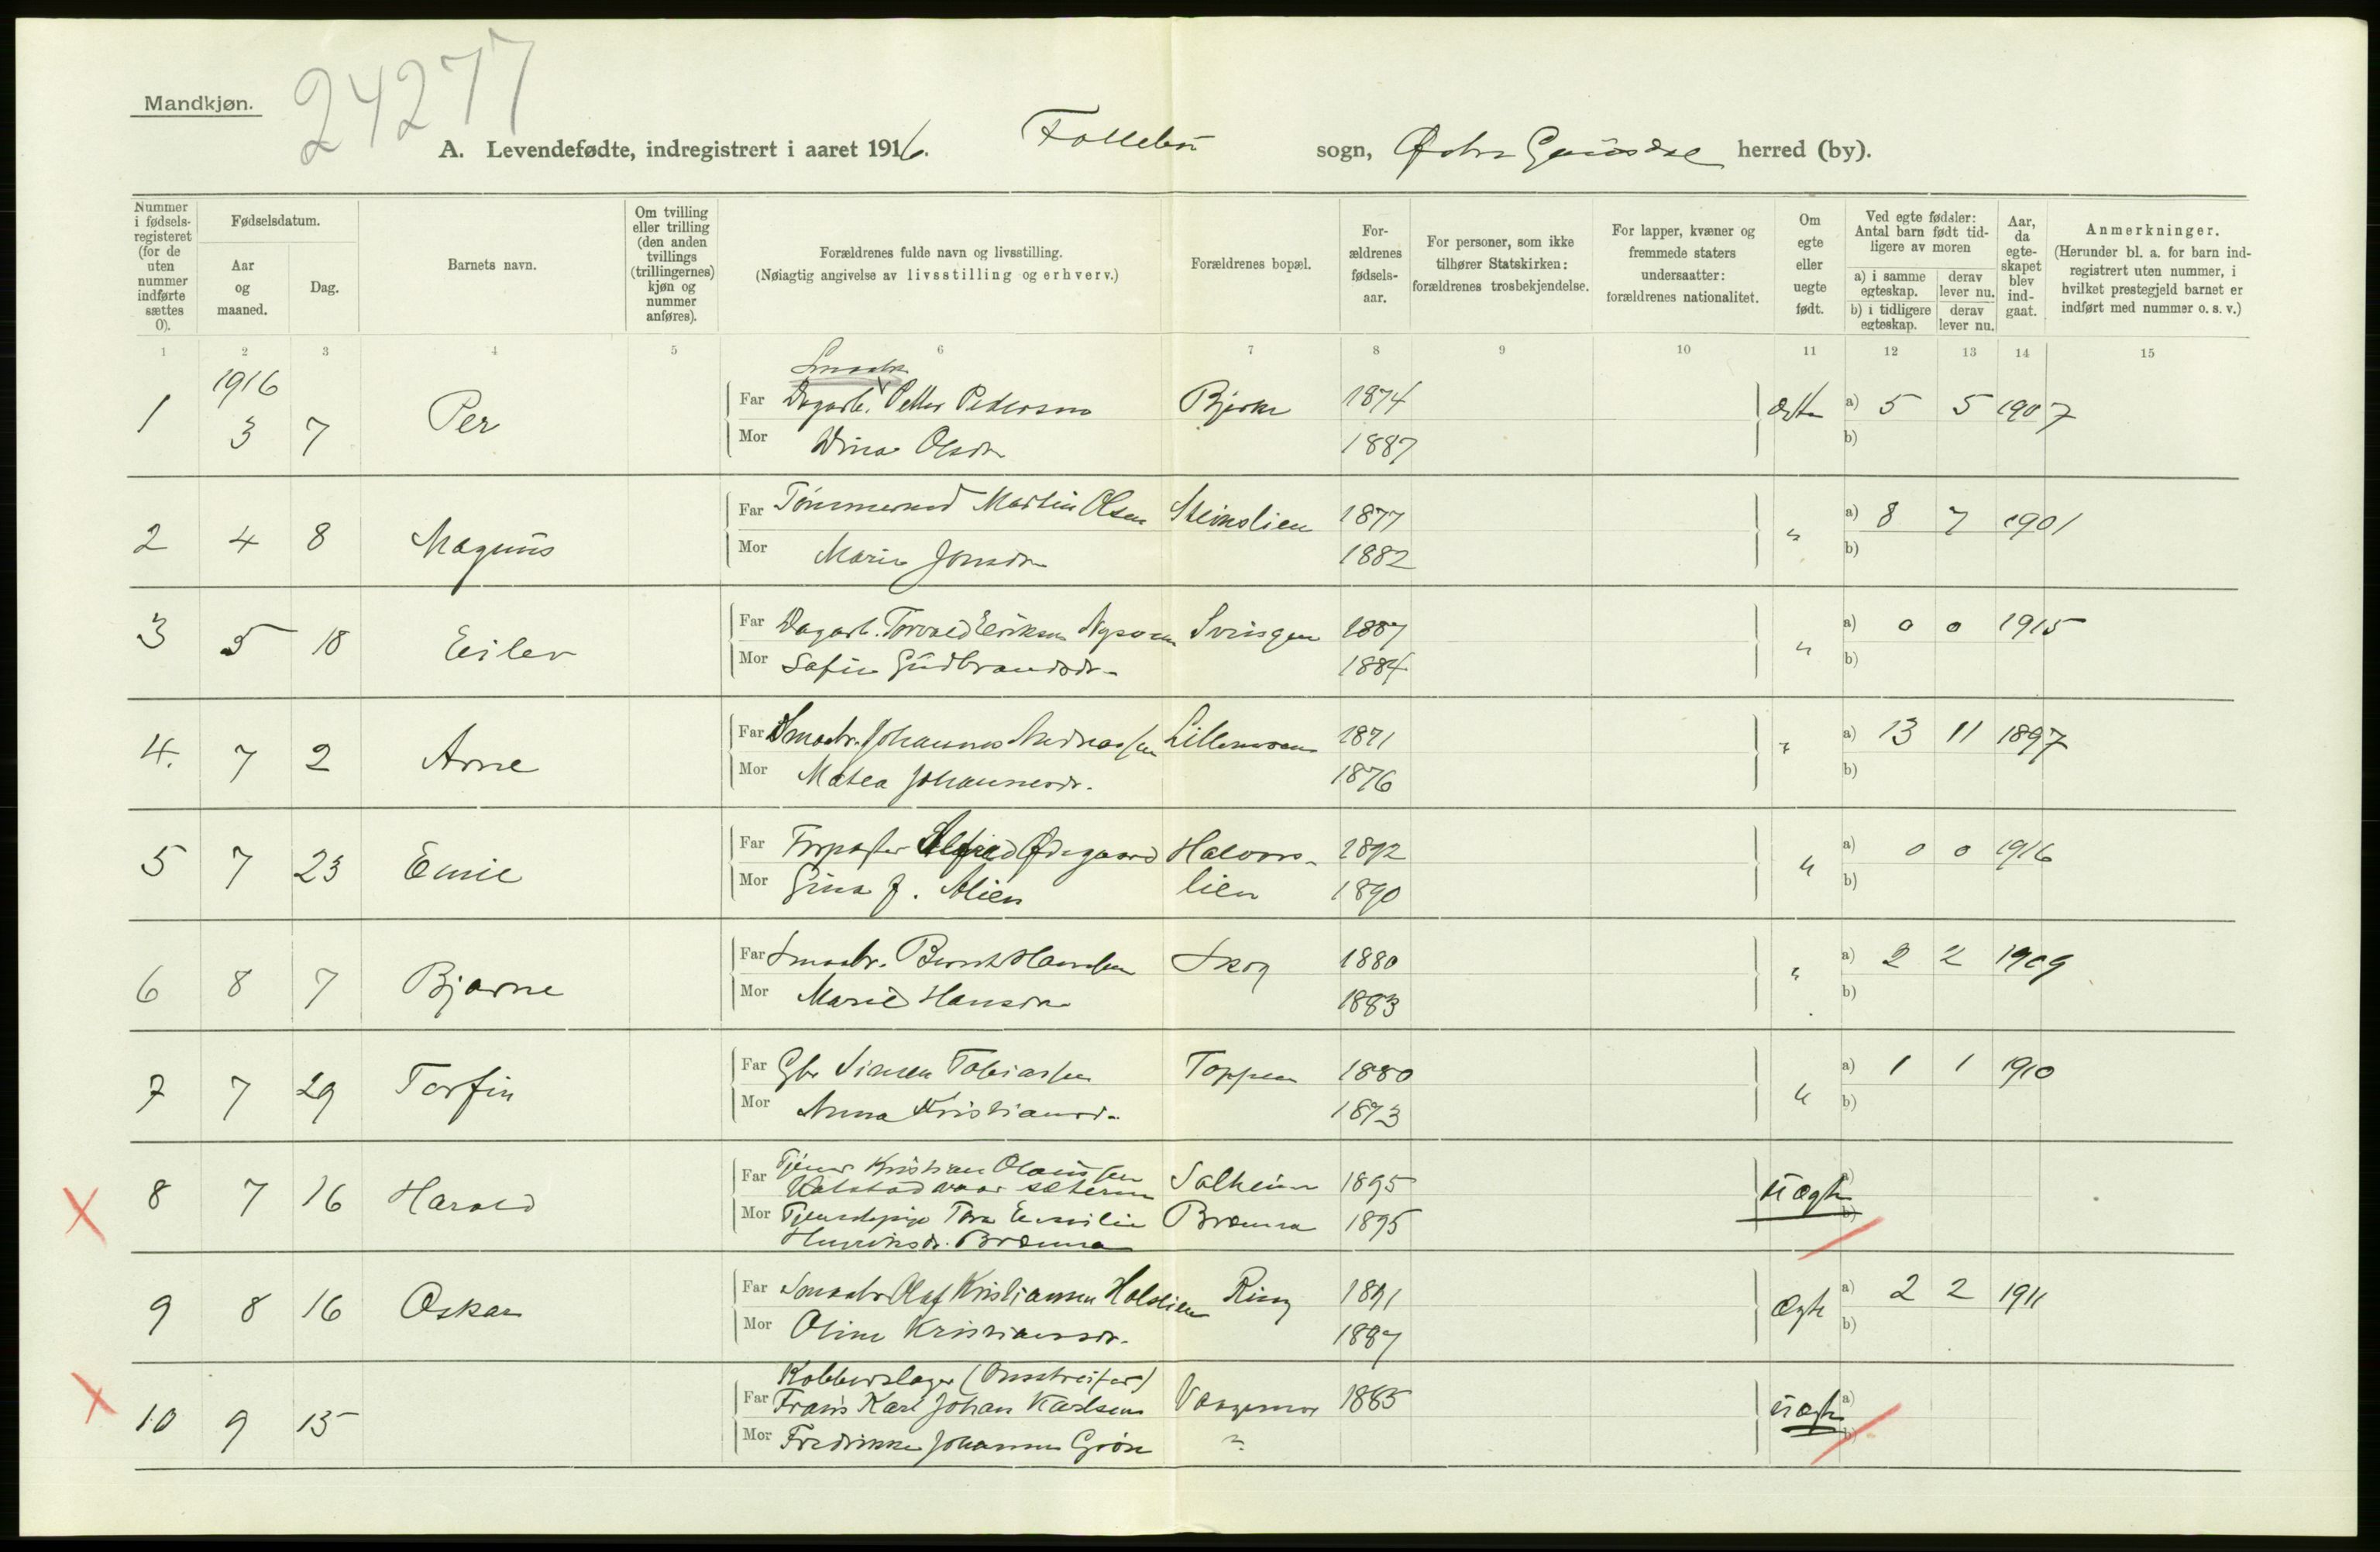 Mandkjøn.
24277
A. Levendefødte, indregistrert i aaret 1916. Follebu sogn, Østre Gausdal herred (by).
Nummer i fødsels-registeret (for de uten nummer indførte sættes 0).
Fødselsdatum.
Aar og maaned.
Dag.
Barnets navn.
Om tvilling eller trilling (den anden tvillings (trillingernes) kjøn og nummer anføres).
Forældrenes fulde navn og livsstilling.
(Nøiagtig angivelse av livsstilling og erhverv.)
Forældrenes bopæl.
For-ældrenes fødsels-aar.
For personer, som ikke tilhører Statskirken: forældrenes trosbekjendelse.
For lapper, kvæner og fremmede staters undersaatter: forældrenes nationalitet.
Om egte eller uegte født.
Ved egte fødsler: Antal barn født tid-ligere av moren
a) i samme egteskap.
derav lever nu.
b) i tidligere egteskap.
derav lever nu.
Aar, da egte-skapet blev ind-gaat.
Anmerkninger.
(Herunder bl. a. for barn ind-registrert uten nummer, i hvilket prestegjeld barnet er indført med nummer o. s. v.)
1 2 3 4 5 6 7 8 9 10 11 12 13 14 15
1916
Smaabr.
1 3 7 Per Far Dagarb. Petter Pedersen Bjerke 1874 ægte a) 5 5 1907
Mor Dina Olsdr 1887 b)
2 4 8 Magnus Far Tømmermd Martin Olsen Steinslien 1877 " a) 8 7 1901
Mor Marie Jonsdr 1882 b)
3 5 18 Eilev Far Dagarb. Torvald Eriksen Svingen 1887 " a) 0 0 1915
Mor Sofie Gudbrandsdr. 1884 b)
4. 7 2 Arne Far Smaabr. Johannes Andreassen 1871 " a) 13 11 1897
Mor Matea Johannesdr. 1876 b)
5 7 23 Emil Far Forpagter Alfred Ødegaard Halvors- 1892 " a) 0 0 1916
Mor Gina J. Alien lien 1890 b)
6 8 7 Bjarne Far Smaabr. Bernt Hansen Skog 1880 " a) 2 2 1909
Mor Marie Hansdr 1883 b)
7 7 29 Torfin Far Gbr Simen Tobiassen Toppen 1880 " a) 1 1 1910
Mor Anna Kristiansdr. 1873 b)
8 7 16 Harald Far Tjener Kristian Olaussen Solheim 1895 uægte a)
Mor Tjenestepige Tora Emilie Brænna 1895 b)
Henriksdr. Brænna
9 8 16 Oskar Far Smaabr Olaf Kristiansen Holslien Ring 1881 ægte a) 2 2 1911
Mor Oline Kristiansdr. 1887 b)
Kobberslager (Omstreifer)
10 9 15 Far Frans Karl Johan Karlsen 1885 uægte a)
Mor Fredrikke Johanne Grøn " b)